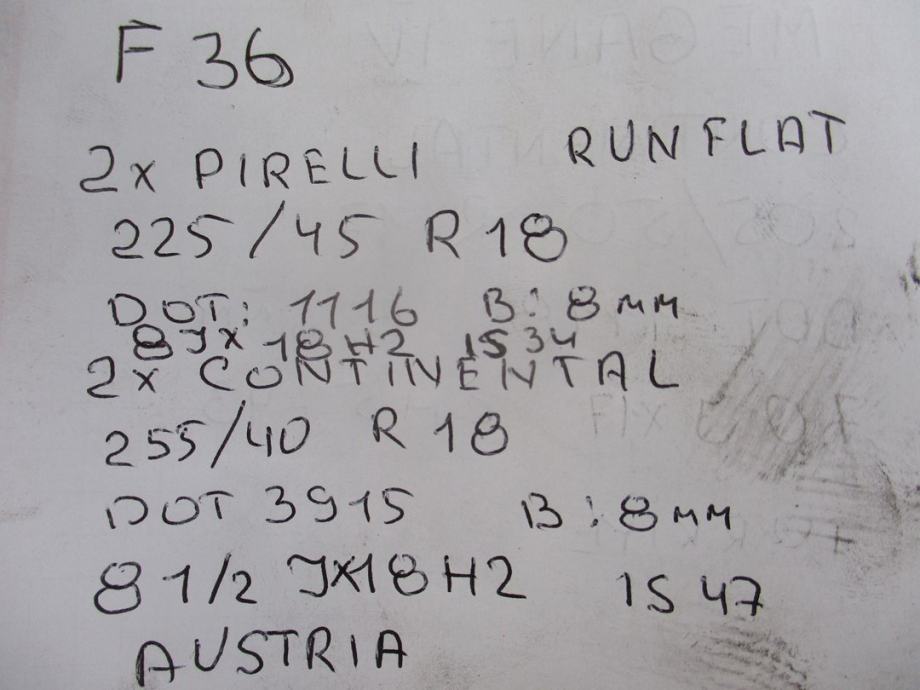 F 36
2x PIRELLI RUNFLAT
225/45 R 18
DOT: 1116 B: 8mm
8Jx 18H2 IS34
2x CONTINENTAL
255/40 R 18
DOT 3915 B: 8mm
8 1/2 Jx18H2 IS 47
AUSTRIA